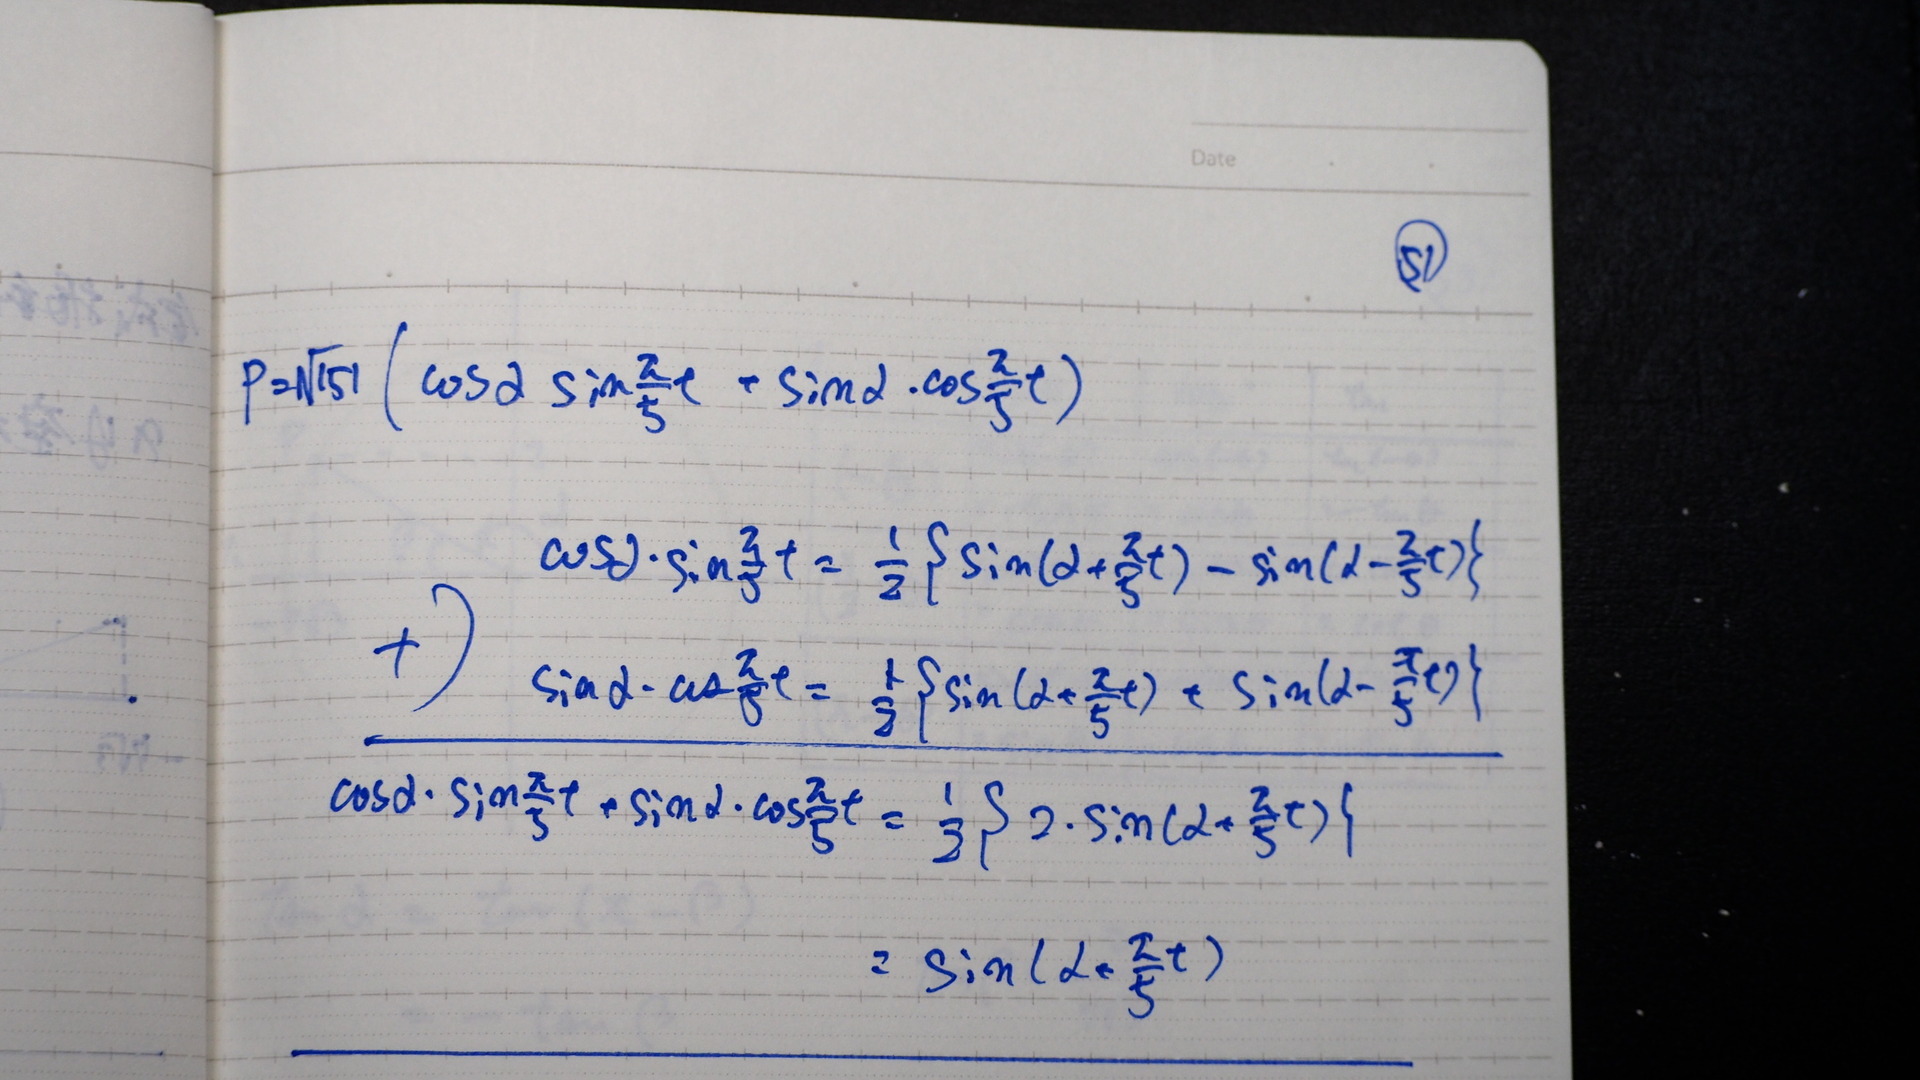 Date
51
P=√151 ( cosα sin π/5 t + sinα · cos π/5 t )
cosα · sin π/5 t = 1/2 { sin(α + π/5 t) - sin(α - π/5 t) }
+)
sinα · cos π/5 t = 1/2 { sin(α + π/5 t) + sin(α - π/5 t) }
cosα · sin π/5 t + sinα · cos π/5 t = 1/2 { 2 · sin(α + π/5 t) }
= sin(α + π/5 t)